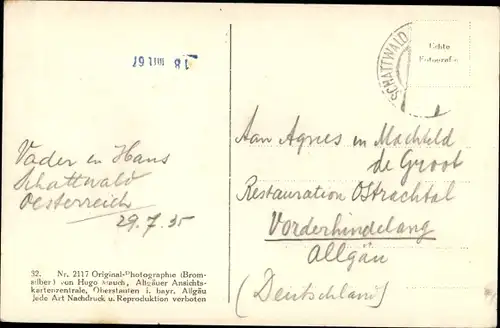 18 VIII 67
SCHATTWALD
Echte
Fotografie
Aan Agnes en Machteld
de Groot
Restauration Ostrachtal
Vorderhindelang
Allgäu
(Deutschland)
Vader en Hans
Schattwald
Oesterreich
29.7.35
32. Nr. 2117 Original-Photographie (Brom-
silber) von Hugo Mauch, Allgäuer Ansichts-
kartenzentrale, Oberstaufen i. bayr. Allgäu
Jede Art Nachdruck u. Reproduktion verboten